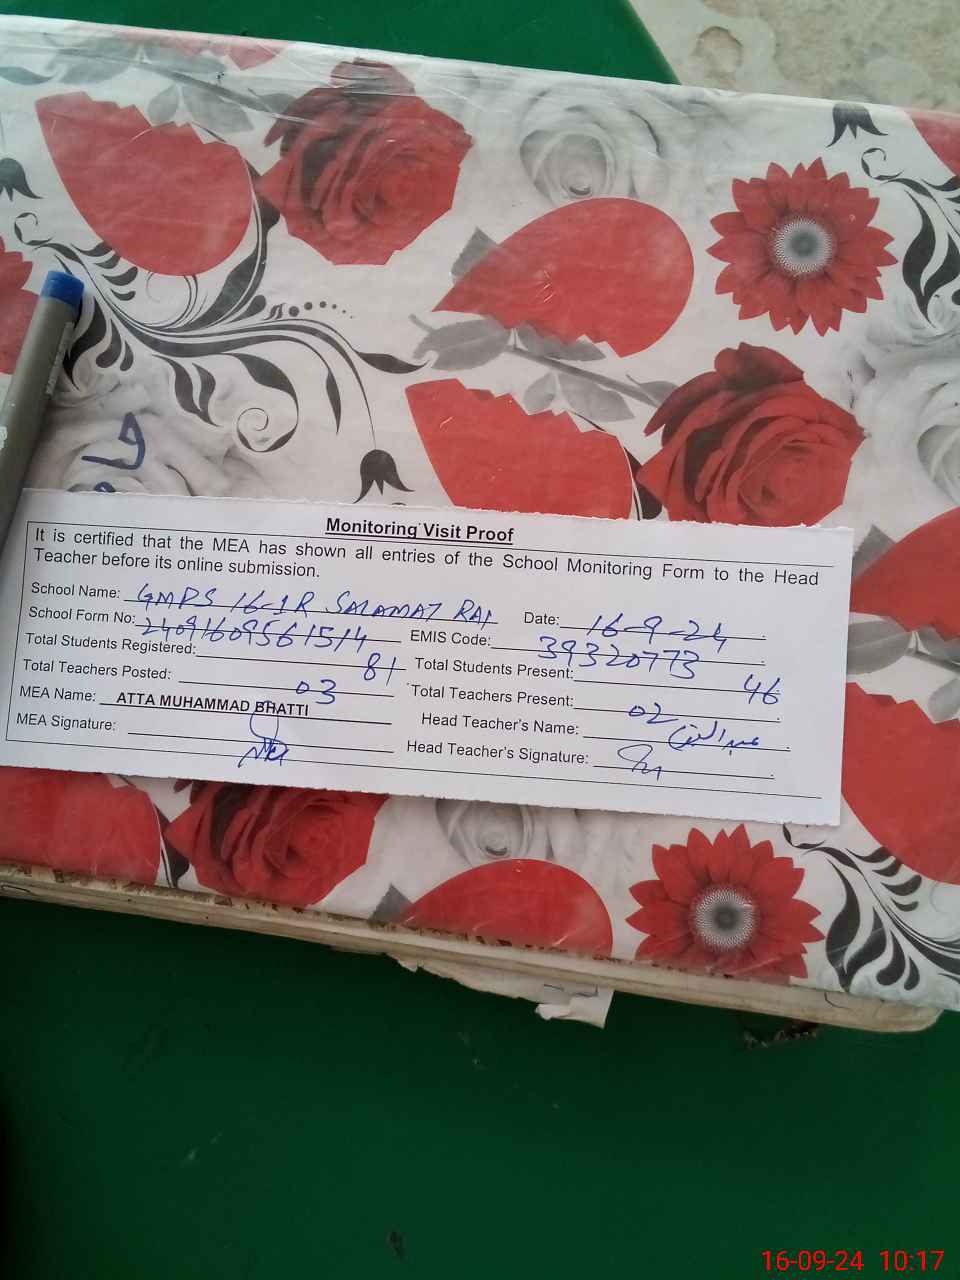 Monitoring Visit Proof
It is certified that the MEA has shown all entries of the School Monitoring Form to the Head
Teacher before its online submission.
School Name: GMPS 16-1R SALAMAT RAI Date: 16-9-24
School Form No: 24091609561514 EMIS Code: 39320773
Total Students Registered: 81 Total Students Present: 46
Total Teachers Posted: 03 Total Teachers Present: 02
MEA Name: ATTA MUHAMMAD BHATTI Head Teacher's Name:
MEA Signature: Head Teacher's Signature:
16-09-24 10:17